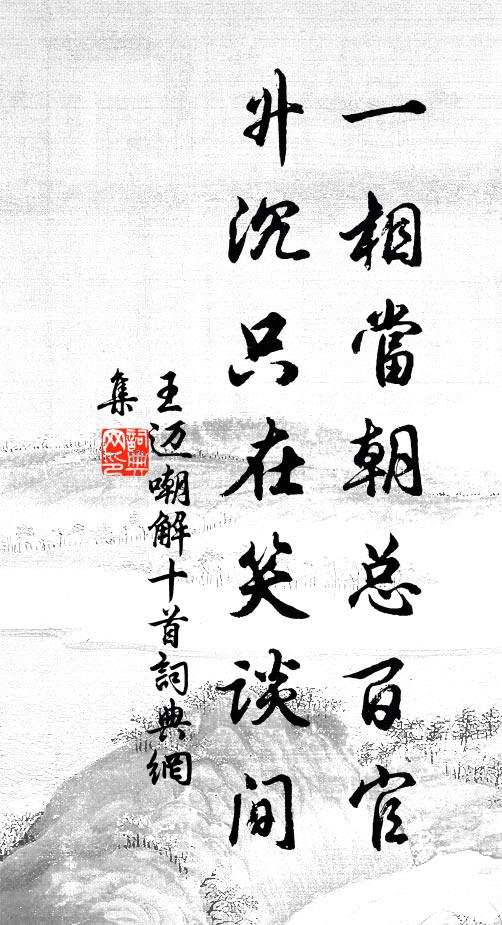 一相當朝总百官
升沉只在笑談间
王迈嘲解十首詞典網
集
詞典网印